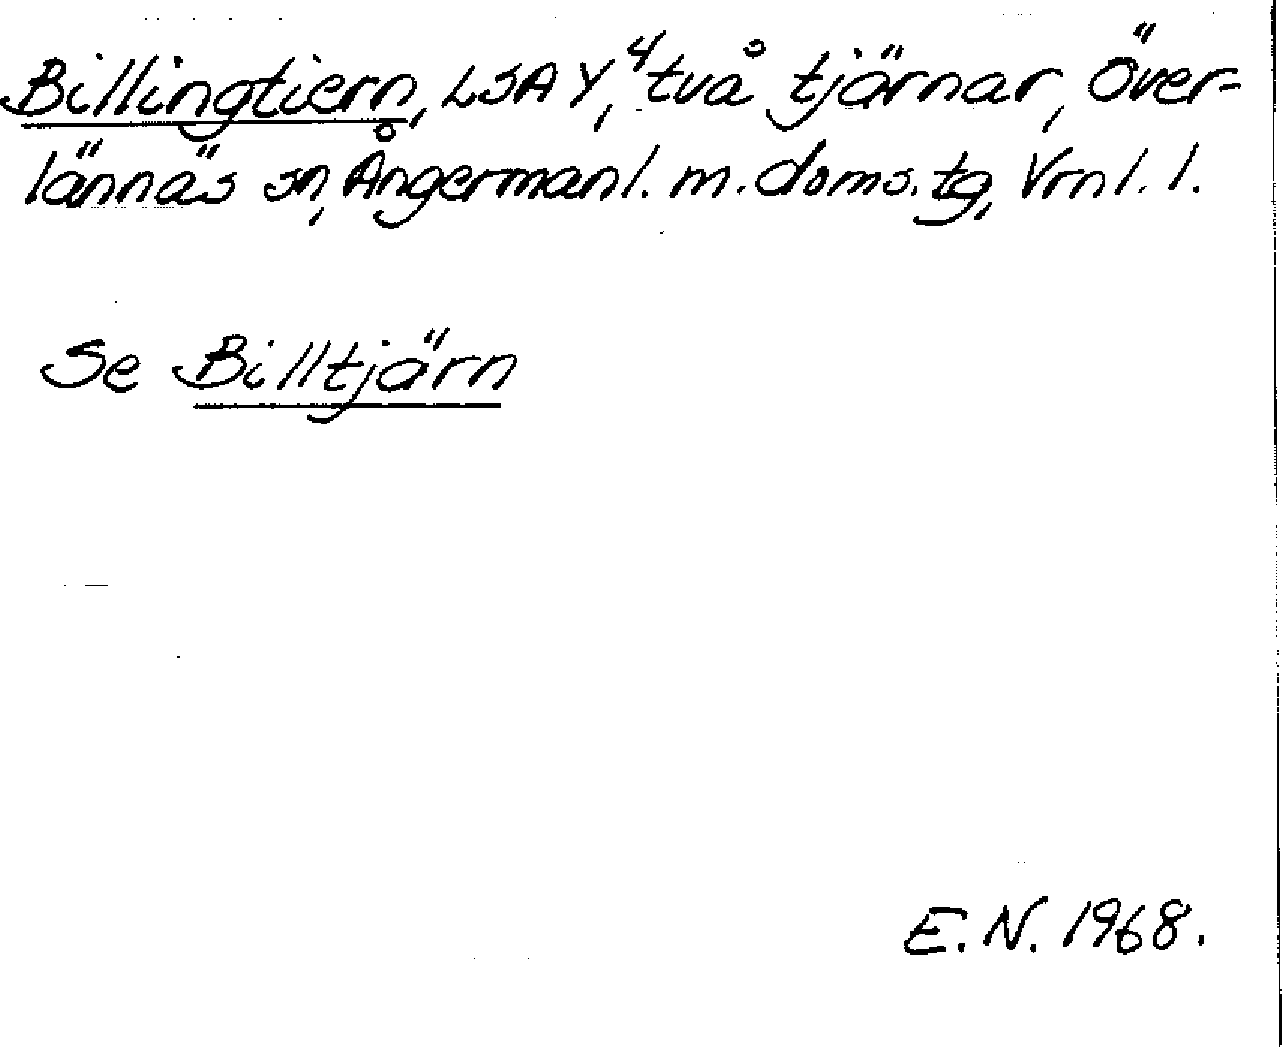 Billingtiern, LSA Y⁴, två tjärnar, Över-
lännäs sn, Ångermanl. m. doms. tg, Vrnl. l.
Se Billtjärn
E. N. 1968.